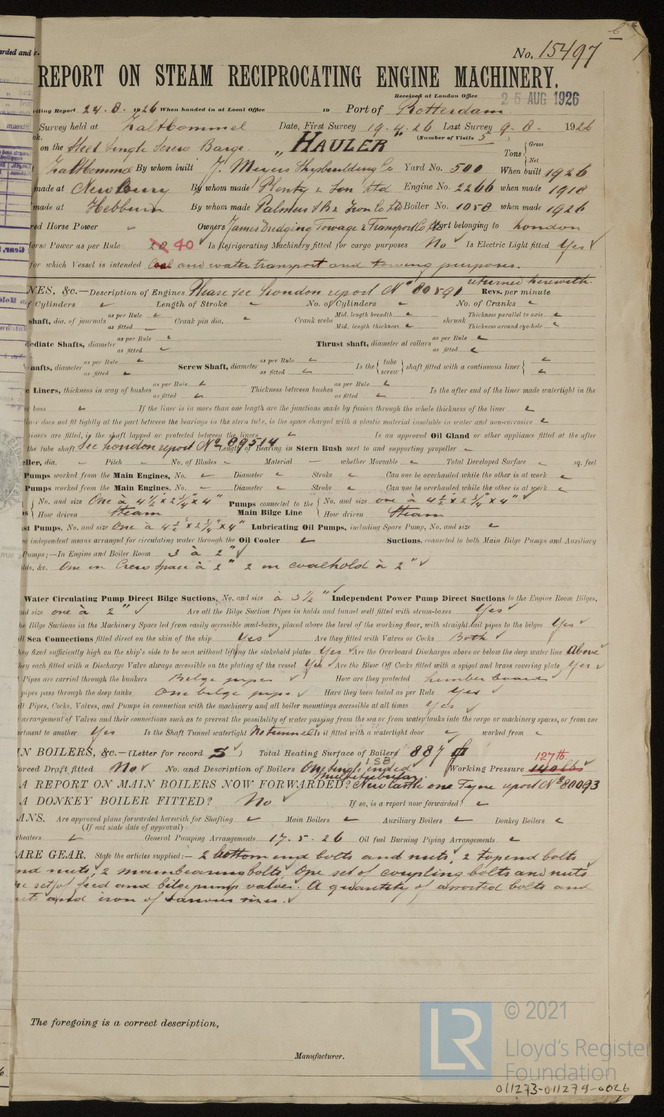 No. 15497
REPORT ON STEAM RECIPROCATING ENGINE MACHINERY.
Received at London Office 25 AUG 1926
Report 24.8.1926 When handed in at Local Office 19 Port of Rotterdam
Survey held at Zaltbommel Date, First Survey 19.4.26 Last Survey 9.8. 1926
(Number of Visits 5
on the Steel Single Screw Barge "HAULER" Tons { Gross Net
Zaltbommel By whom built J. Meyers Shipbuilding Co Yard No. 500 When built 1926
made at Newbury By whom made Plenty & Son Ltd Engine No. 2266 when made 1918
made at Hebburn By whom made Palmers S.B. & Iron Co Ld Boiler No. 1058 when made 1926
Horse Power Owners James Dredging Towage & Transport Co Ltd Port belonging to London
Power as per Rule 40 Is Refrigerating Machinery fitted for cargo purposes No Is Electric Light fitted Yes
for which Vessel is intended Coal and water transport and towing purposes.
NES, &c.—Description of Engines Please see London report No 80890 returned herewith Revs. per minute
of Cylinders Length of Stroke No. of Cylinders No. of Cranks
shaft, dia. of journals as per Rule as fitted Crank pin dia. Crank webs Mid. length breadth Mid. length thickness shrunk Thickness parallel to axis Thickness around eye-hole
ediate Shafts, diameter as per Rule as fitted Thrust shaft, diameter at collars as per Rule as fitted
hafts, diameter as per Rule as fitted Screw Shaft, diameter as per Rule as fitted Is the { tube screw } shaft fitted with a continuous liner {
e Liners, thickness in way of bushes as per Rule as fitted Thickness between bushes as per Rule as fitted Is the after end of the liner made watertight in the
boss If the liner is in more than one length are the junctions made by fusion through the whole thickness of the liner
does not fit tightly at the part between the bearings in the stern tube, is the space charged with a plastic material insoluble in water and non-corrosive
liners are fitted, is the shaft lapped or protected between the liners Is an approved Oil Gland or other appliance fitted at the after
the tube shaft See London report No 89314 Length of Bearing in Stern Bush next to and supporting propeller
ller, dia. Pitch No. of Blades Material whether Moveable Total Developed Surface sq. feet
Pumps worked from the Main Engines, No. Diameter Stroke Can one be overhauled while the other is at work
Pumps worked from the Main Engines, No. Diameter Stroke Can one be overhauled while the other is at work
No. and size One à 4½ x 2¾ x 4" Pumps connected to the Main Bilge Line { No. and size one à 4½ x 2¾ x 4"
How driven Steam How driven Steam
st Pumps, No. and size One à 4½ x 2¾ x 4" Lubricating Oil Pumps, including Spare Pump, No. and size
independent means arranged for circulating water through the Oil Cooler Suctions, connected to both Main Bilge Pumps and Auxiliary
Pumps;—In Engine and Boiler Room 3 à 2"
lds, &c. One in Crew space à 2" 2 in coalhold à 2"
Water Circulating Pump Direct Bilge Suctions, No. and size à 3½" Independent Power Pump Direct Suctions to the Engine Room Bilges,
and size one à 2" Are all the Bilge Suction Pipes in holds and tunnel well fitted with strum-boxes Yes
he Bilge Suctions in the Machinery Space led from easily accessible mud-boxes, placed above the level of the working floor, with straight tail pipes to the bilges Yes
ll Sea Connections fitted direct on the skin of the ship Yes Are they fitted with Valves or Cocks Both
they fixed sufficiently high on the ship's side to be seen without lifting the stokehold plates Yes Are the Overboard Discharges above or below the deep water line Above
they each fitted with a Discharge Valve always accessible on the plating of the vessel Yes Are the Blow Off Cocks fitted with a spigot and brass covering plate Yes
Pipes are carried through the bunkers Bilge pipes How are they protected lumber boards
pipes pass through the deep tanks One bilge pipe Have they been tested as per Rule Yes
ll Pipes, Cocks, Valves, and Pumps in connection with the machinery and all boiler mountings accessible at all times Yes
arrangement of Valves and their connections such as to prevent the possibility of water passing from the sea or from water tanks into the cargo or machinery spaces, or from one
rtment to another Yes Is the Shaft Tunnel watertight No tunnel Is it fitted with a watertight door worked from
IN BOILERS, &c.—(Letter for record S) Total Heating Surface of Boilers 887
orced Draft fitted No No. and Description of Boilers One single ended 1SB Working Pressure 140 lbs 127 lb
A REPORT ON MAIN BOILERS NOW FORWARDED? Newcastle on Tyne report No 80093
A DONKEY BOILER FITTED? No If so, is a report now forwarded?
ANS. Are approved plans forwarded herewith for Shafting Main Boilers Auxiliary Boilers Donkey Boilers
(If not state date of approval)
heaters General Pumping Arrangements 17.5.26 Oil fuel Burning Piping Arrangements
ARE GEAR. State the articles supplied:— 2 bottom end bolts and nuts, 2 top end bolts
and nuts, 2 main bearing bolts, One set of coupling bolts and nuts
set of feed and bilge pump valves. A quantity of assorted bolts and
nuts and iron of various sizes.
The foregoing is a correct description,
Manufacturer.
© 2021
LR
Lloyd's Register
Foundation
011273-011279-0026